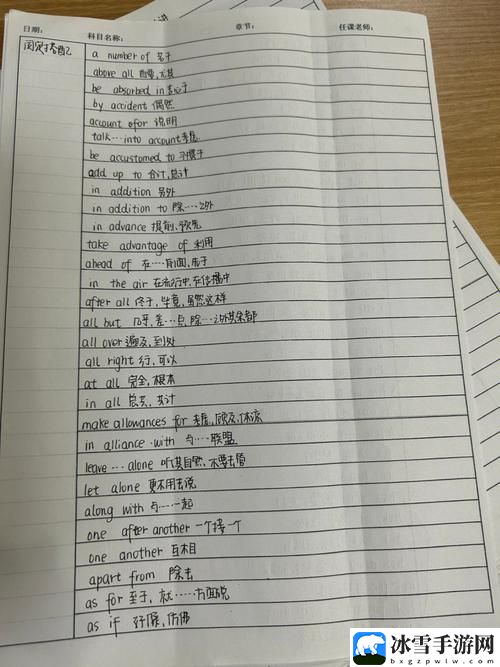 日期:
科目名称:
章节:
任课老师:
固定搭配
a number of 若干
above all 首要,尤其
be absorbed in 专心于
by accident 偶然
account for 说明
talk…into account 考虑
be accustomed to 习惯于
add up to 合计,总计
in addition 另外
in addition to 除…之外
in advance 提前,预先
take advantage of 利用
ahead of 在…前面,先于
in the air 在流行中,在传播中
after all 终于,毕竟,虽然这样
all but 几乎,差…点,除…之外其余都
all over 遍及,到处
all right 行,可以
at all 完全,根本
in all 总共,共计
make allowances for 考虑,顾及,体谅
in alliance with 与……联盟
leave … alone 听其自然,不要去管
let alone 更不用去说
along with 与……一起
one after another 一个接一个
one another 互相
apart from 除去
as for 至于,就……方面说
as if 好像,仿佛
冰雪手游网
bxgzpwlw.com